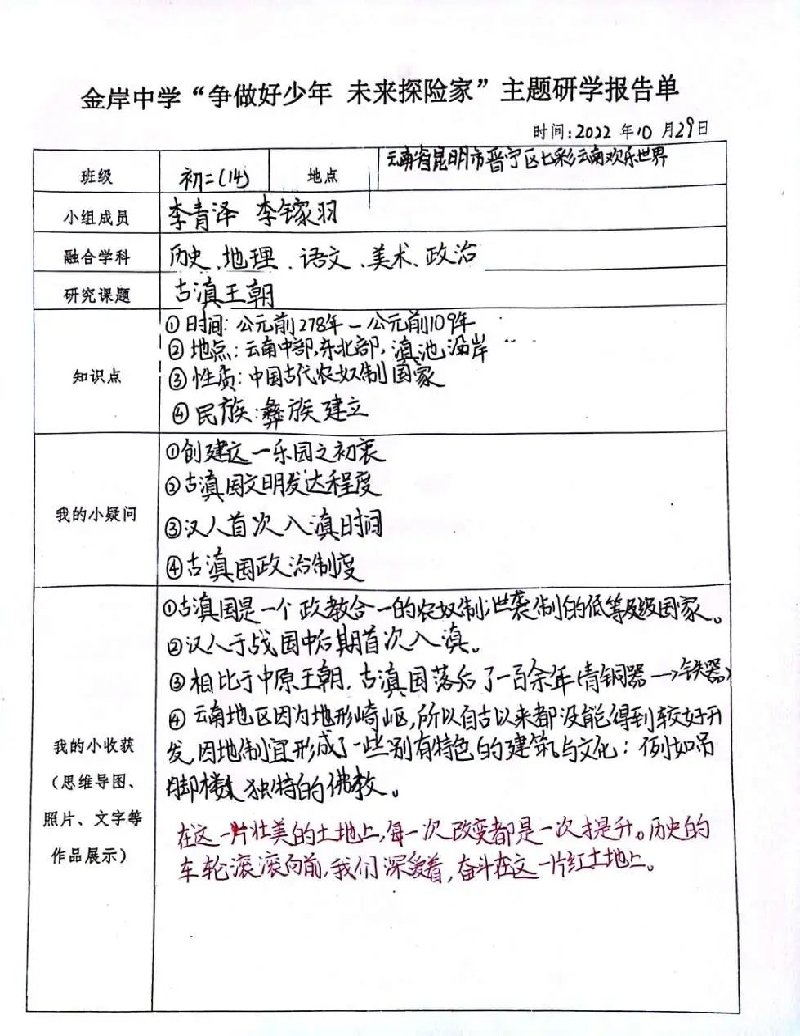 金岸中学“争做好少年 未来探险家”主题研学报告单
时间:2022 年10 月29日
班级 初二(14) 地点 云南省昆明市晋宁区七彩云南欢乐世界
小组成员 李青泽 李镓羽
融合学科 历史、地理、语文、美术、政治
研究课题 古滇王朝
知识点
①时间:公元前278年—公元前109年
②地点:云南中部,东北部,滇池沿岸
③性质:中国古代农奴制国家
④民族:彝族建立
我的小疑问
①创建这一乐园之初衷
②古滇国文明发达程度
③汉人首次入滇时间
④古滇国政治制度
我的小收获
(思维导图、
照片、文字等
作品展示)
①古滇国是一个政教合一的农奴制世袭制的低等级国家。
②汉人于战国中后期首次入滇。
③相比于中原王朝,古滇国落后了一百余年(青铜器→铁器)
④云南地区因为地形崎岖,所以自古以来都没能得到较好开
发,因地制宜形成了一些别有特色的建筑与文化:例如吊
脚楼,独特的佛教。
在这一片壮美的土地上,每一次改变都是一次提升。历史的
车轮滚滚向前,我们深爱着,奋斗在这一片红土地上。